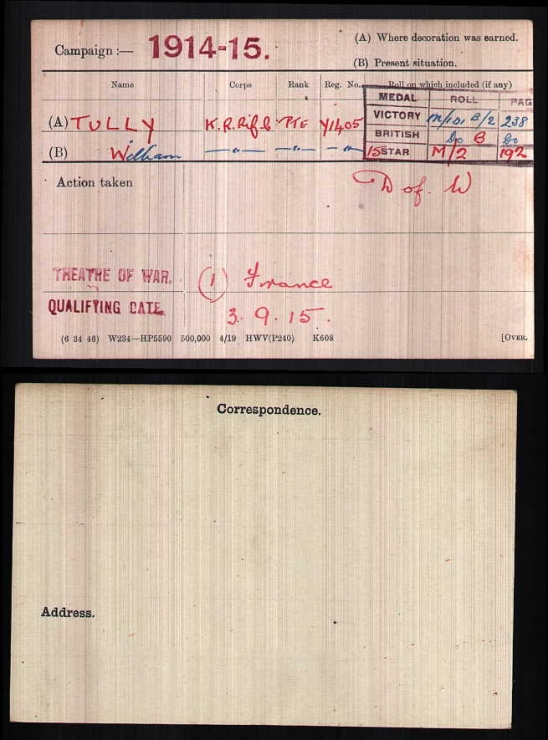 Campaign :— 1914-15.
(A) Where decoration was earned.
(B) Present situation.
Name Corps Rank Reg. No. Roll on which included (if any)
MEDAL ROLL PAG
(A) TULLY K.R.Rif.C PTE Y1405 VICTORY M/101 B/2 238
BRITISH Do B Do
(B) William —"— —"— —"— 15 STAR M/2 192
Action taken D of W
THEATRE OF WAR. (1) France
QUALIFYING DATE. 3.9.15.
(6 34 46) W234—HP5590 500,000 4/19 HWV(P240) K608 [OVER.
Correspondence.
Address.